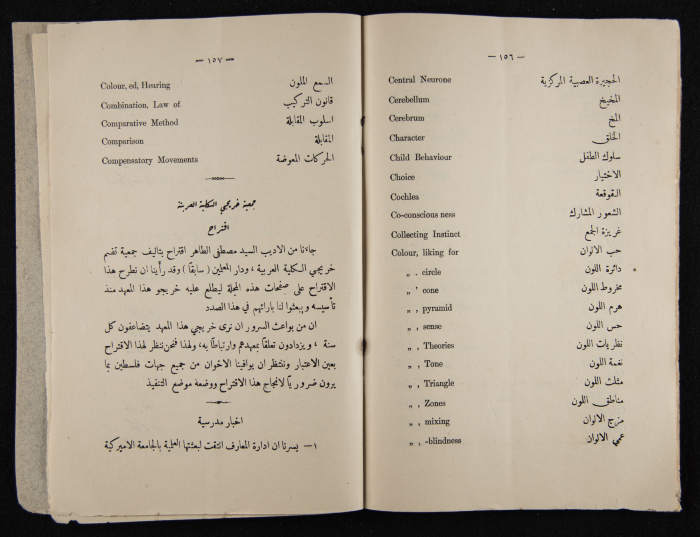 — ١٥٦ —
Central Neurone الحجيرة العصبية المركزية
Cerebellum المخيخ
Cerebrum المخ
Character الخلق
Child Behaviour سلوك الطفل
Choice الاختيار
Cochles القوقعة
Co-conscious ness الشعور المشارك
Collecting Instinct غريزة الجمع
Colour, liking for حب الالوان
„ . circle دائرة اللون
„ ' cone مخروط اللون
„ , pyramid هرم اللون
„ , sense حس اللون
„ , Theories نظريات اللون
„ , Tone نغمة اللون
„ , Triangle مثلث اللون
„ , Zones مناطق اللون
„ , mixing مزج الالوان
„ , -blindness عمي الالوان
— ١٥٧ —
Colour, ed, Hearing السمع الملون
Combination, Law of قانون التركيب
Comparative Method اسلوب المقابلة
Comparison المقابلة
Compensatory Movements الحركات المعوضة
جمعية خريجي الكلية العربية
اقتراح
جاءنا من الاديب السيد مصطفى الطاهر اقتراح بتاليف جمعية تضم
خريجي الكلية العربية ، ودار المعلمين ( سابقاً ) وقد رأينا ان نطرح هذا
الاقتراح على صفحات هذه المجلة ليطلع عليه خريجو هذا المعهد منذ
تأسيسه ويبعثوا لنا بارائهم في هذا الصدد
ان من بواعث السرور ان نرى خريجي هذا المعهد يتضاعفون كل
سنة ، ويزدادون تعلقاً بمعهدهم وارتباطاً به، ولهذا فنحن ننظر لهذا الاقتراح
بعين الاعتبار وننتظر ان يوافينا الاخوان من جميع جهات فلسطين بما
يرون ضرورياً لانجاح هذا الاقتراح ووضعه موضع التنفيذ
اخبار مدرسية
١— يسرنا ان ادارة المعارف انتقت لبعثتها العلمية بالجامعة الاميركية